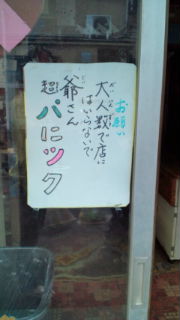 お願い
大人数で店に
はいらないで
爺さん
超パニック